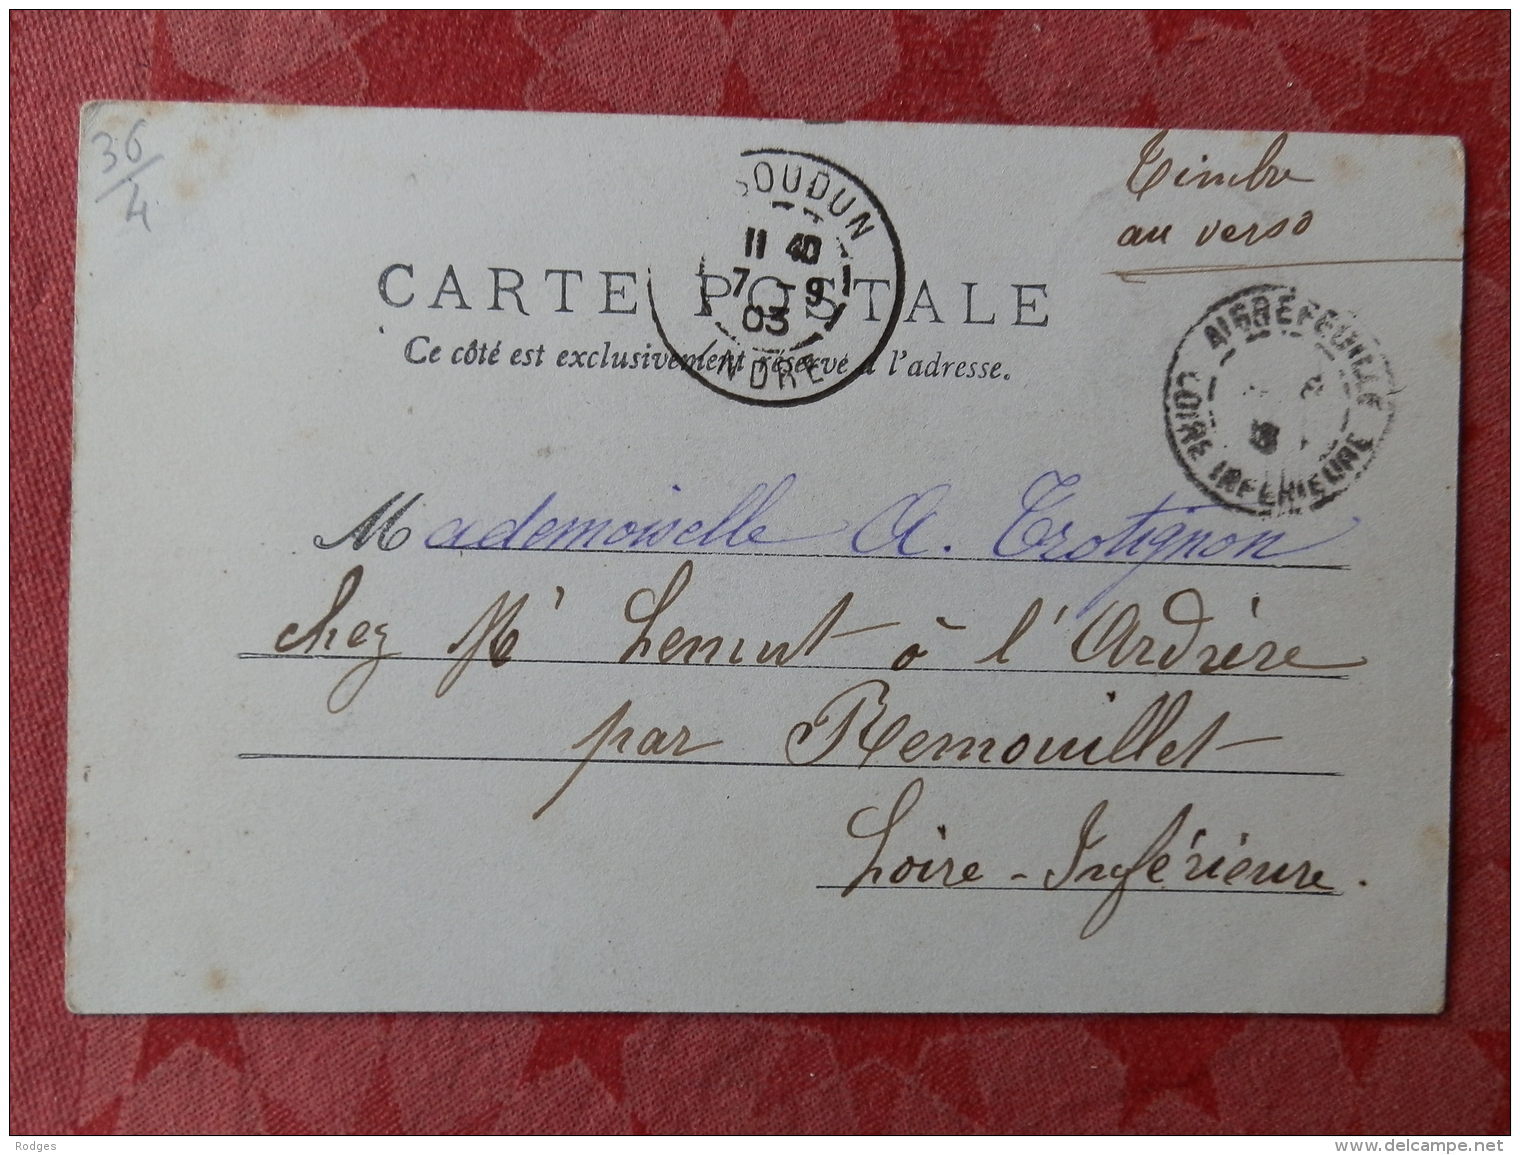 36/4
Timbre
au verso
SOUDUN
11 40
7 - 9
03
INDRE
CARTE POSTALE
Ce côté est exclusivement réservé à l'adresse.
AIGREFEUILLE
LOIRE INFERIEURE
Mademoiselle A. Trotignon
chez Mr à l'Ardrère
par Remouillet
Loire-Inférieure.
Rodges
www.delcampe.net